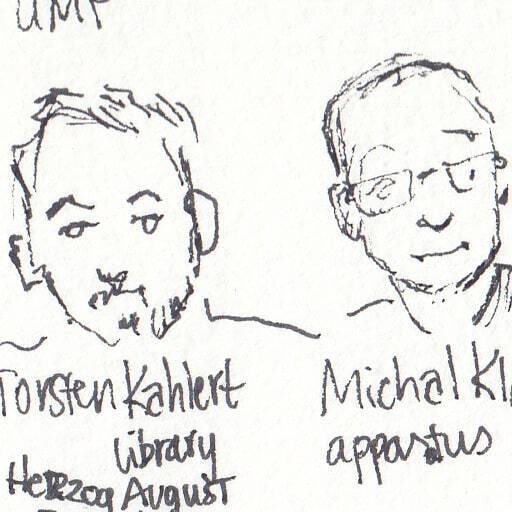 UMP
Torsten Kahlert
library
Herzog August
Michal Kl
apparatus